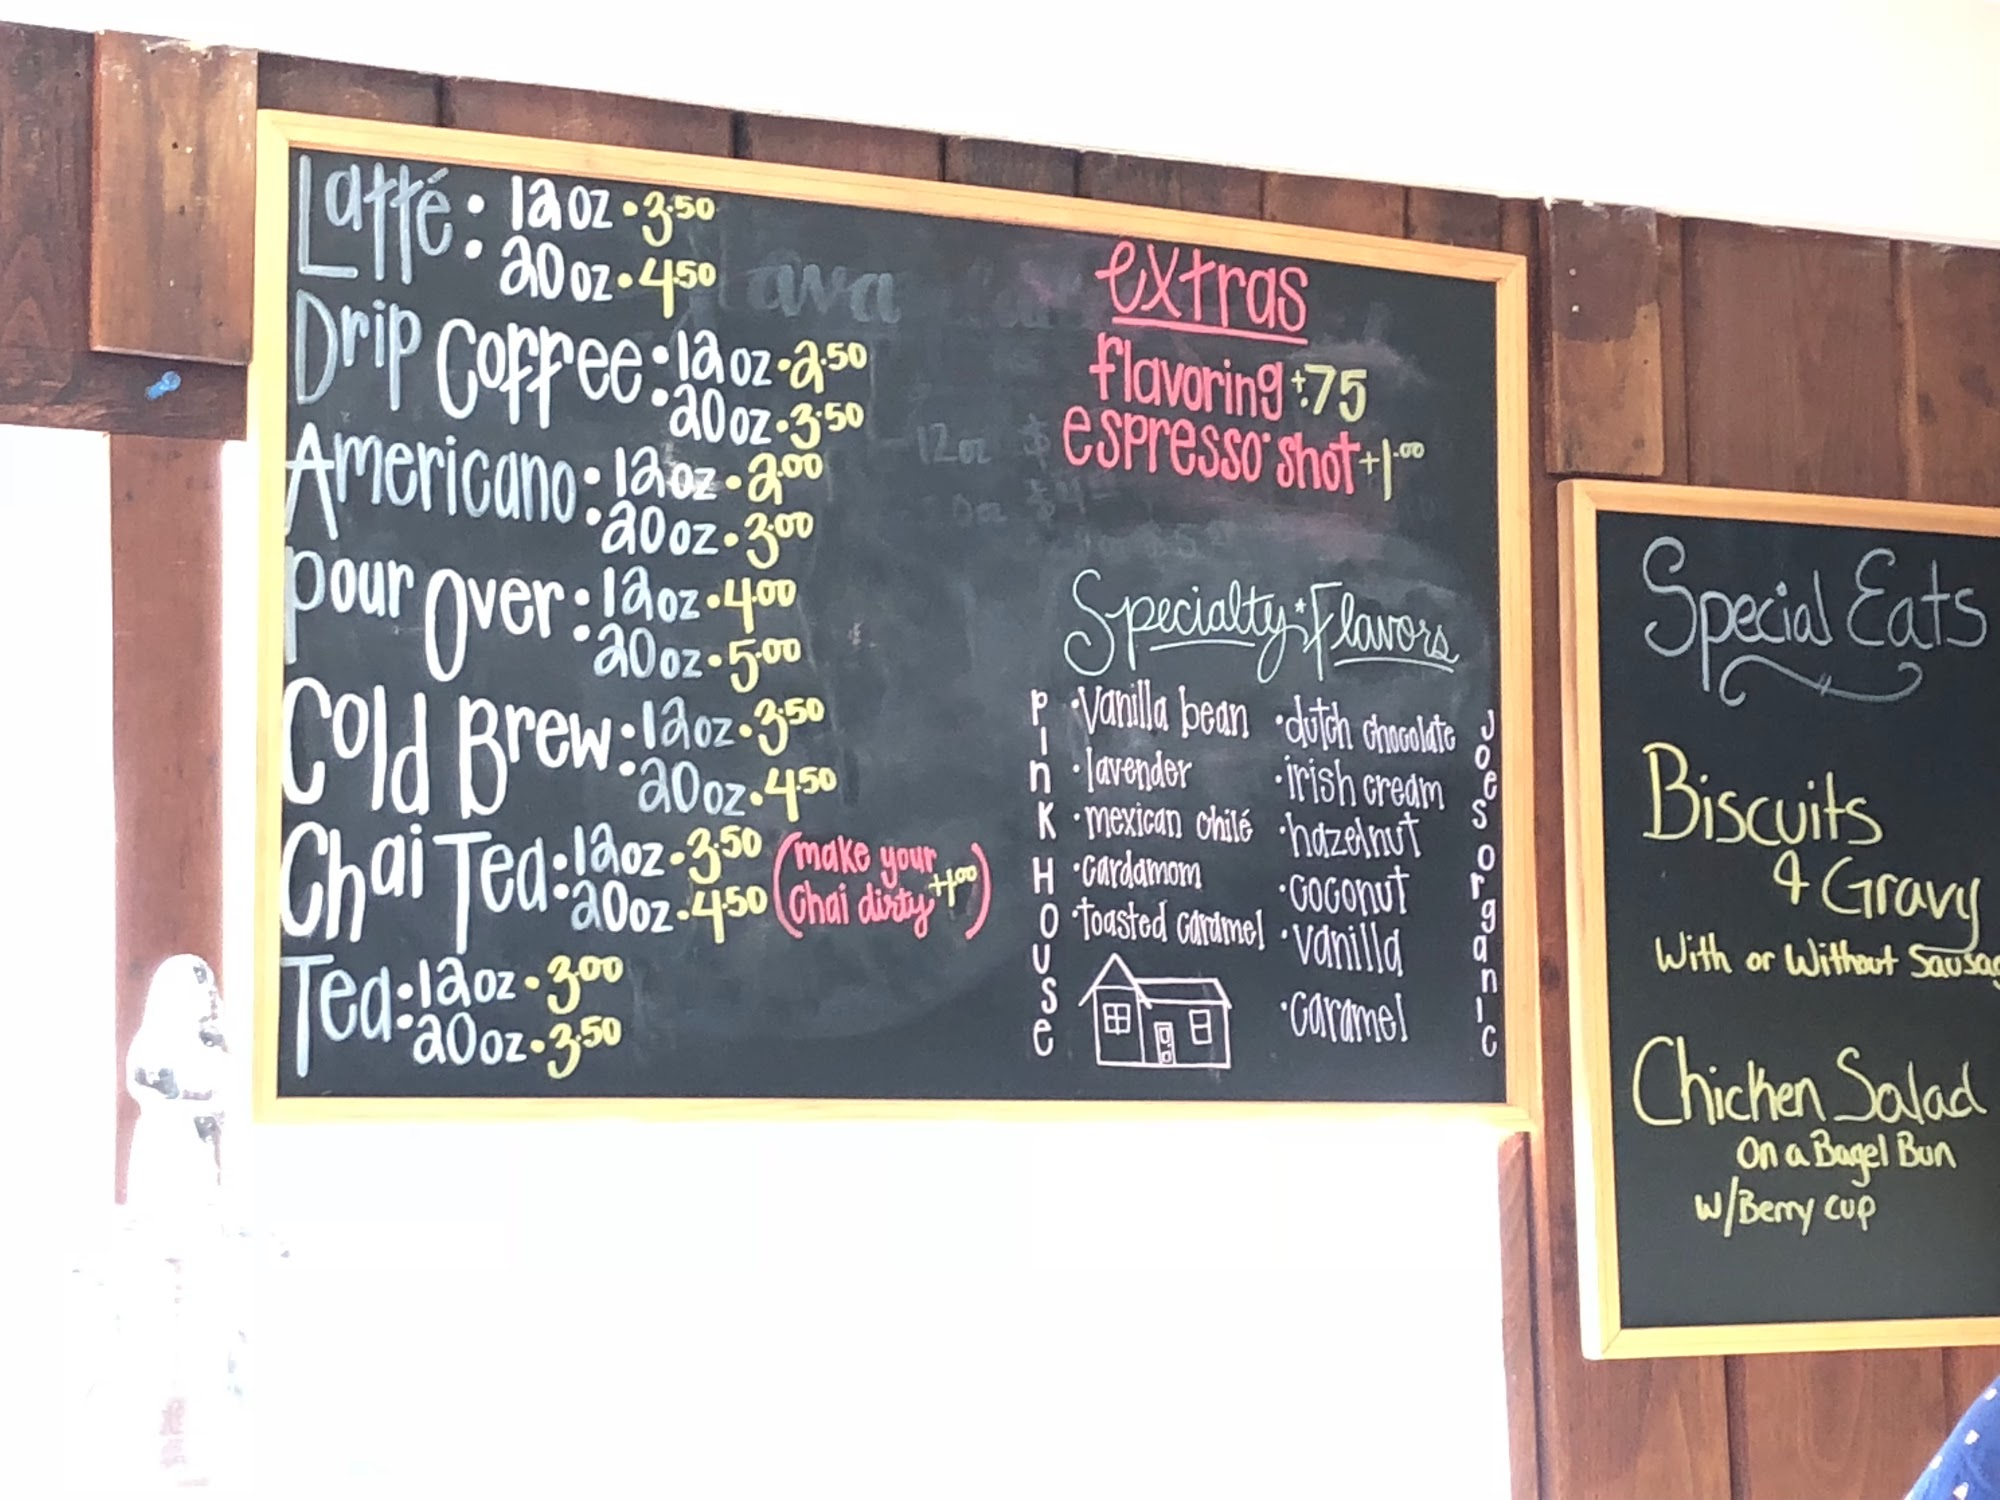 Latté: 12oz • 3.50
20oz • 4.50
Drip Coffee: 12oz • 2.50
20oz • 3.50
Americano: 12oz • 2.00
20oz • 3.00
Pour Over: 12oz • 4.00
20oz • 5.00
Cold Brew: 12oz • 3.50
20oz • 4.50
Chai Tea: 12oz • 3.50
20oz • 4.50
(make your
chai dirty +1.00)
Tea: 12oz • 3.00
20oz • 3.50
extras
flavoring +.75
espresso shot +1.00
Specialty * Flavors
Pink House
• Vanilla bean
• lavender
• mexican chilé
• cardamom
• toasted caramel
• dutch chocolate
• irish cream
• hazelnut
• coconut
• vanilla
• caramel
Joes organic
Special Eats
Biscuits
& Gravy
With or Without
Chicken Salad
On a Bagel Bun
w/Berry cup